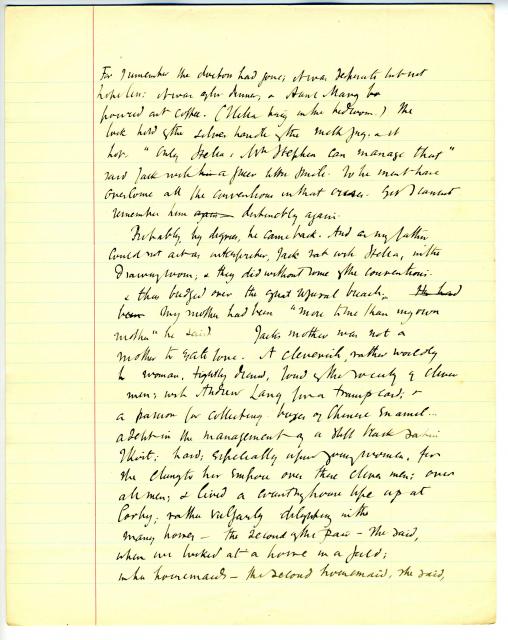 For I remember the doctors had gone; it was desperate but not
hopeless: it was after dinner, & Aunt Mary
poured out coffee. (Stella being in the bedroom.) She
took hold of the silver handle of the milk jug. & it
hot. "Only Stella & Mrs Stephen can manage that"
said Jack with a queer little smile. So he must have
overcome all the conventions in that crisis. Yet I cannot
remember him again distinctly again.
Probably, by degrees, he came back. And as my father
could not act as interpreter, Jack sat with Stella, in the
Drawing room; & they did without some of the conventions.
& thus bridged over the great natural breach. He had
been My mother had been "more to me than my own
mother" he said Jacks mother was not a
mother to love. A cleverish, rather worldly
woman, tightly dressed, fond of the society of clever
men; with Andrew Lang for a trump card; &
a passion for collecting boxes of Chinese Enamel..
adept in the management of a stiff black satin
skirt; hard; especially upon young women, for
she clung to her Empire over these clever men; over
all men; & lived a country house life up at
Corby; rather vulgarly delighting in the
many horses – the second of the pair – she said,
when we looked at a horse in a field;
in her housemaids – the second housemaid, she said,